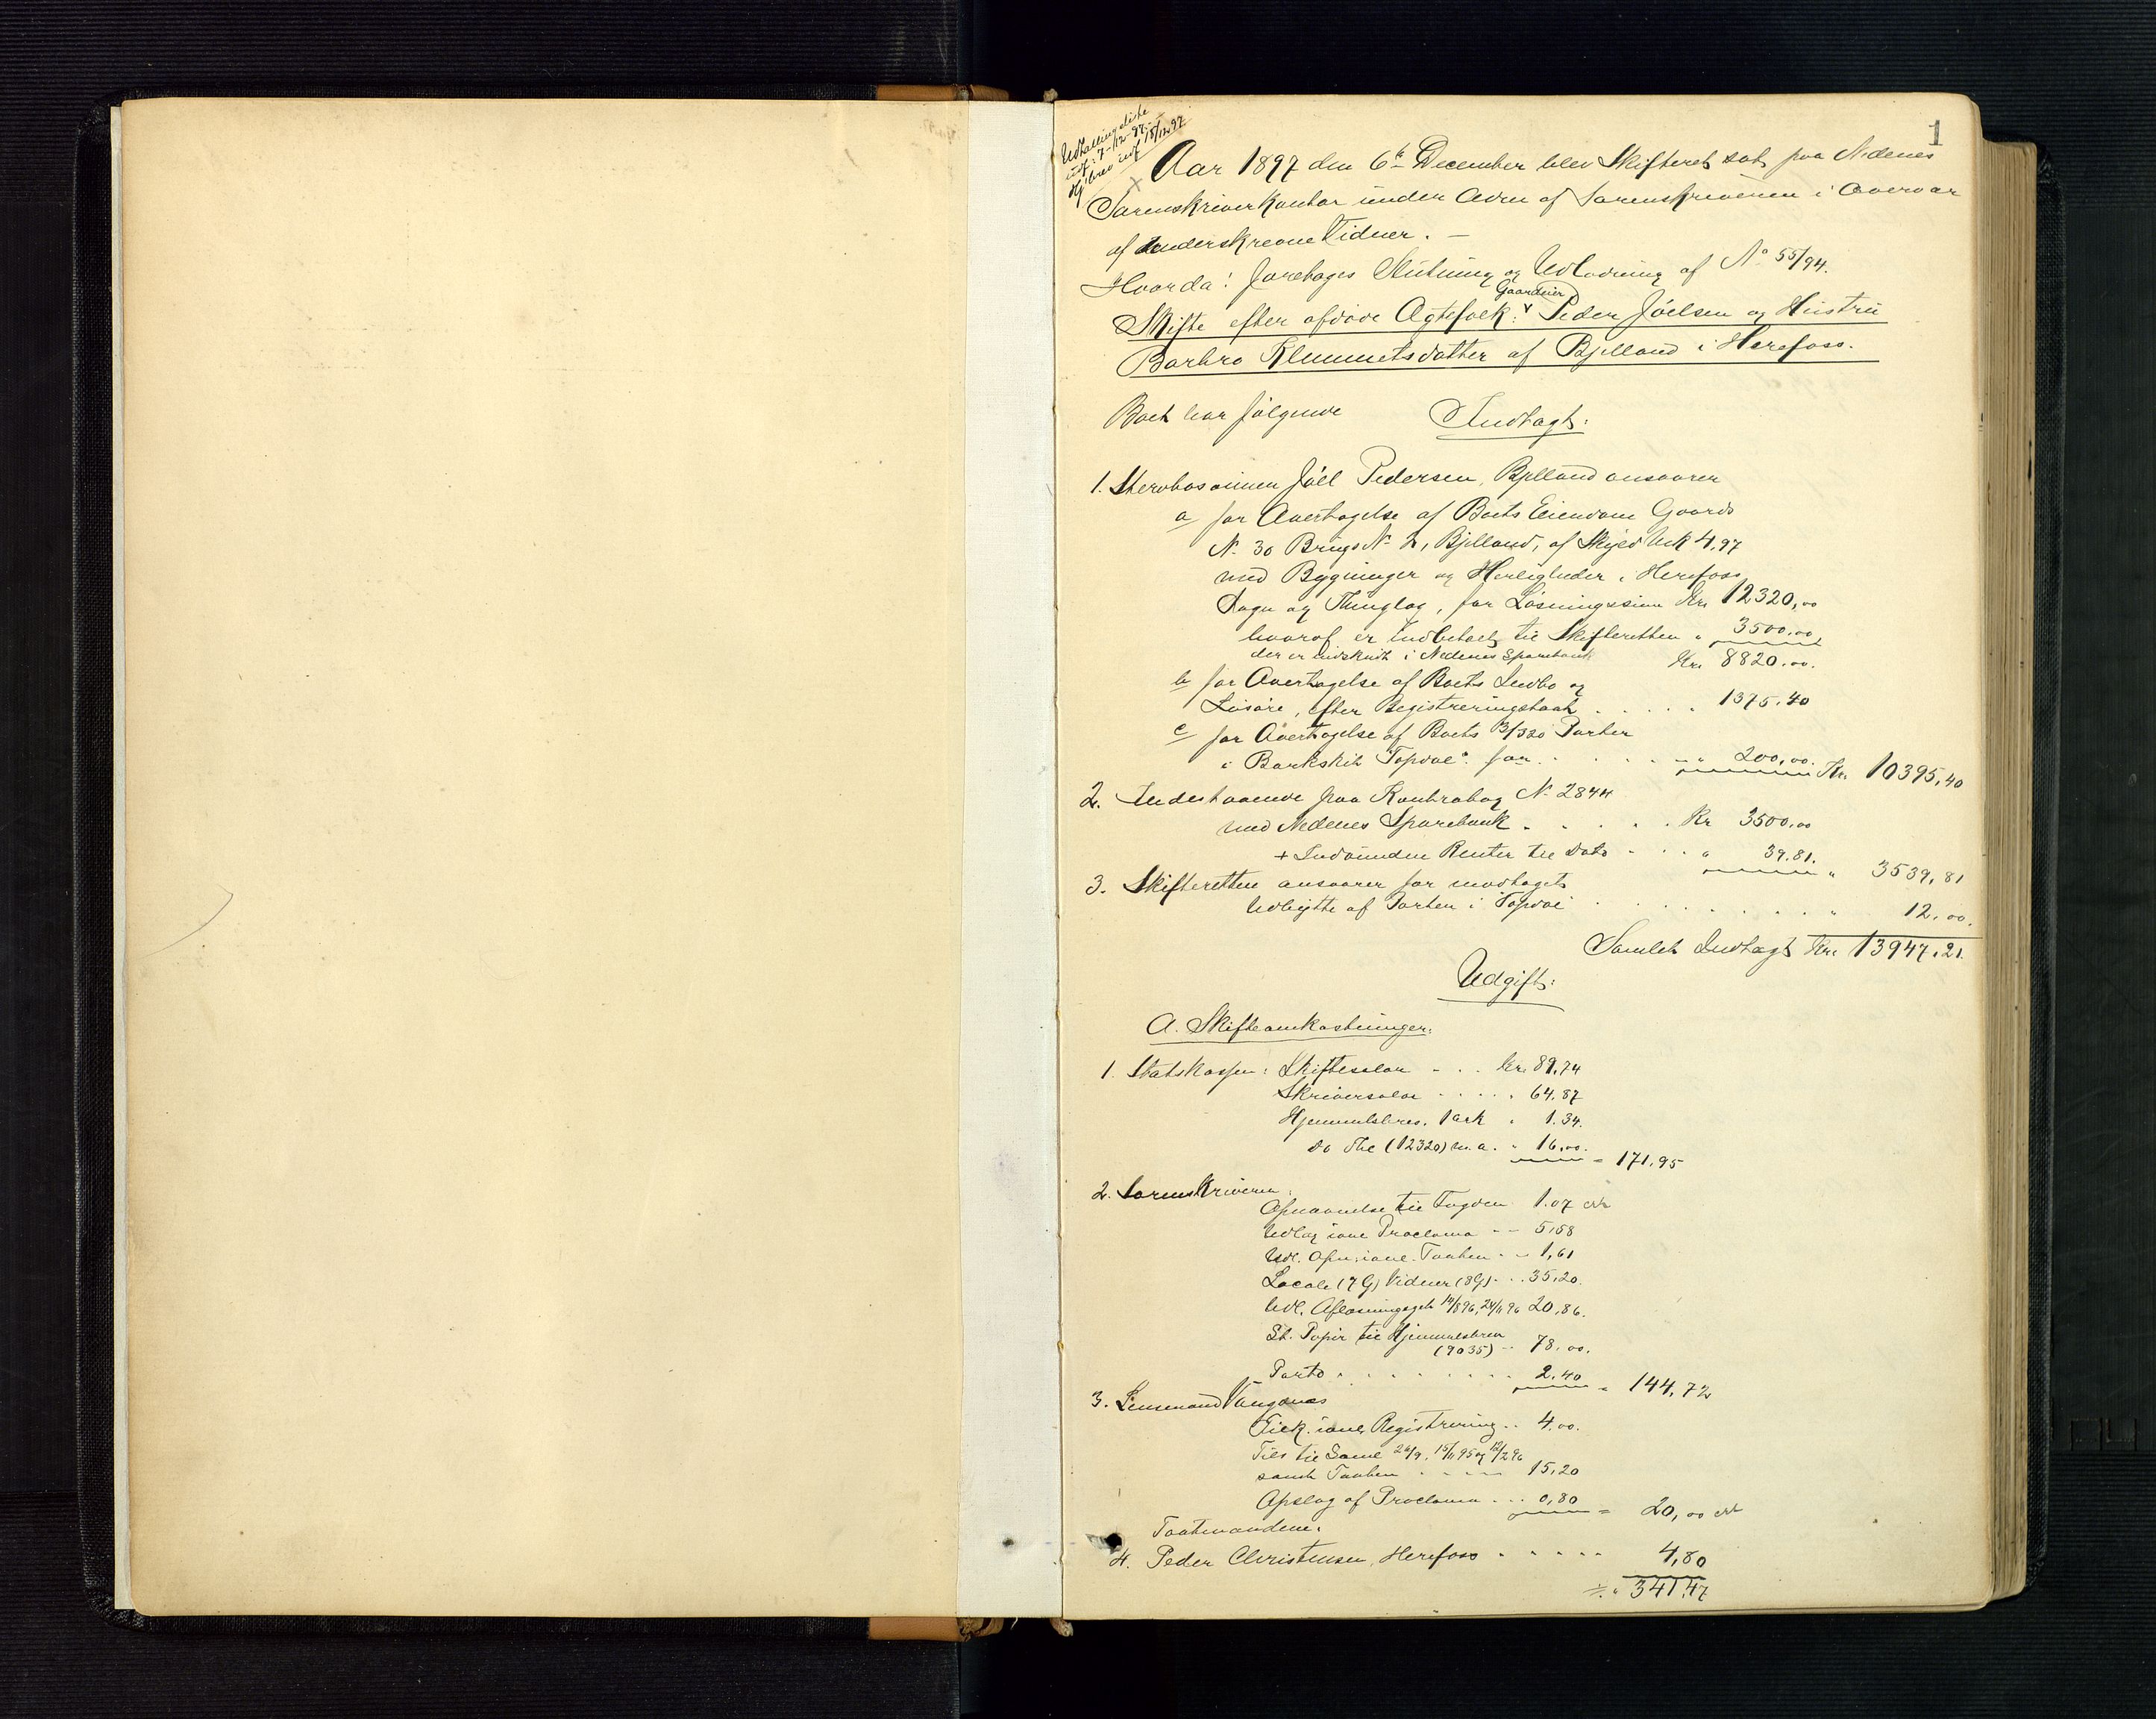 1
Udtællingsliste
udf. 7-/12-97.
Hj.brev udf 18/12 97
Aar 1897 den 6te December blev Skifteret sat paa Nedenes
Sorenskriverkontor under Adm af Sorenskriveren i Overvær
af underskrevne Vidner. —
Hvorda: foretoges Slutning og Udlodning af No 55/94.
Gaardeier
Skifte efter afdøde Ægtefolk: Peder Jöelsen og Hustru
Barbro Klemmetsdatter af Bjelland i Herefoss.
Boet har følgende Indtægt:
1. Stervbosønnen Jöel Pedersen, Bjelland ansvarer
a for Overtagelse af Boets Eiendom Gaards
No 30 Brugs No 2, Bjelland, af Skyld Mk 4,97
med Bygninger og Herligheder i Herefoss
Sogn og Thinglag, for Løsningssum Kr. 12320,00
hvoraf er Indbetalt til Skifteretten " 3500.00
der er indskudt i Nedenes Sparebank Kr. 8820.00.
b for Overtagelse af Boets Indbo og
Løsøre, efter Registreringstaxt . . . . . 1375.40
c for Overtagelse af Boets 13/320 Parter
i Barkskib "Topdal" for . . . . . " 200,00. Kr. 10395,40
2. Indestaaende paa Kontrabog No 2844
med Nedenes Sparebank . . . . . Kr 3500.00
+ Indvundne Renter til Dato . . . " 39.81. " 3539,81
3. Skifteretten ansvarer for modtaget
Udbytte af Parten i Topdal . . . . . . . " 12.00.
Samlet Indtægt Kr. 13947.21.
Udgift:
A. Skifteomkostninger.
1. Statskassen: Skiftesalær - . . Kr. 89,74
Skriversalær . . . . . 64.87
Hjemmelsbrev. 1 ark " 1.34.
do Thl (12320) m.a. " 16,00. = 171,95
2. Sorenskriveren:
Opnævnelse til Fogden 1.07
Udlæg i anl Proclama -- 5,58
Udl. Opn. i anl. Taxten - - 1,61
Locale (7 G) Vidner (8 G) - . . 35,20.
Udl. Afløsningsget 14/8 96, 24/11 96 20,86.
St. Papir til Hjemmelsbrev
(9035) -- 78.00.
Porto . . . . . . . . 2.40 = 144,72
3. Lensmand Vangsnes
Tilk. i anl. Registrering . . 4.00.
Tils til Saml 26/9, 15/11 95 og 12/2 96
samt Taxten . . . -- 15.20
Opslag af Proclama . . . 0,80 = 20,00
Taxtmændene:
4. Peder Christensen, Herefoss . . . . . 4,80
÷ " 341,47